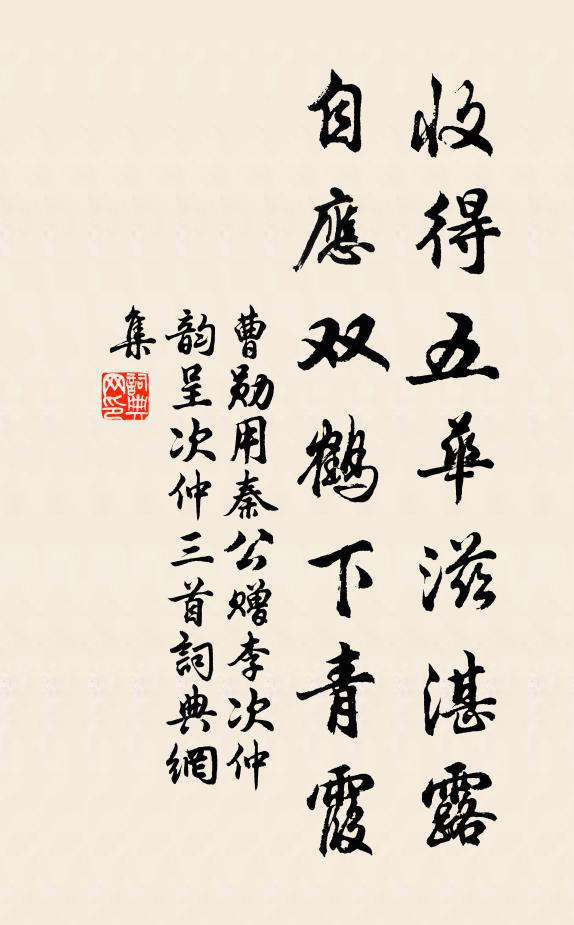 收得五華滋湛露
自應双鶴下青霞
曹勛用秦公赠李次仲
韵呈次仲三首詞典網
集
詞典网印